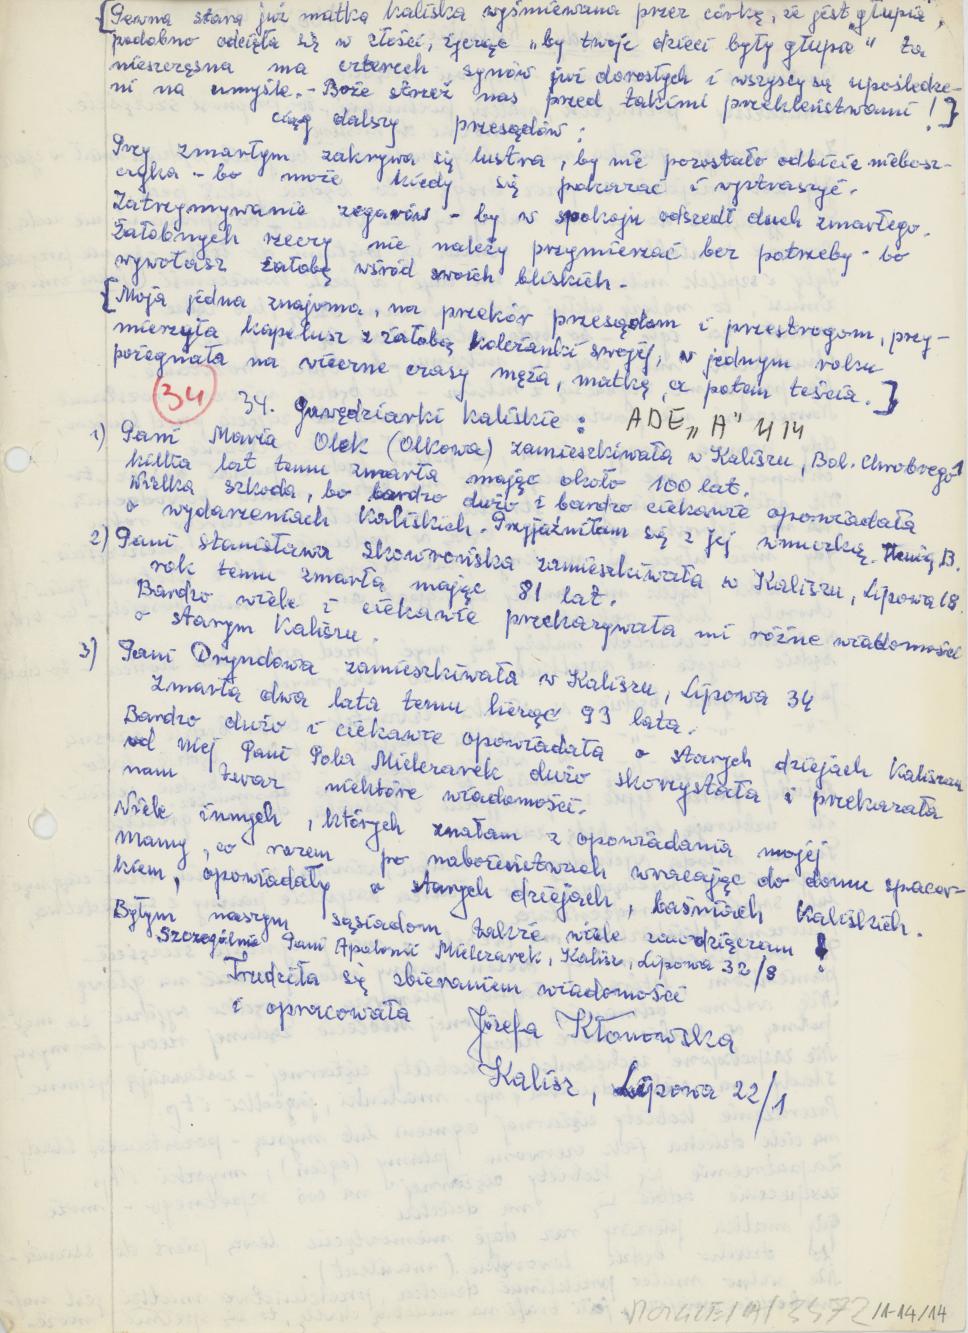 [Pewna stara już matka kaliska wyśmiewana przez córkę, że jest "głupia",
podobno odcięła się w złości, życząc "by twoje dzieci były głupie" Ta
nieszczęsna ma czterech synów już dorosłych i wszyscy są upośledze-
ni na umyśle. - Boże strzeż nas przed takimi przekleństwami!]
ciąg dalszy przesądów:
Przy zmarłym zakrywa się lustra, by nie pozostało odbicie niebosz-
czyka - bo może kiedy się pokazać i wystraszyć.
Zatrzymywanie zegarów - by w spokoju odszedł duch zmarłego.
Żałobnych rzeczy nie należy przymierzać bez potrzeby - bo
wywołasz żałobę wśród swoich bliskich. -
[Moja jedna znajoma, na przekór przesądom i przestrogom, przy-
mierzyła kapelusz z żałobą koleżanki swojej, w jednym roku
pożegnała na wieczne czasy męża, matkę, a potem teścia.]
34 34. Gawędziarki kaliskie: ADE "A" 414
1) Pani Maria Olek (Olkowa) zamieszkiwała w Kaliszu, Bol. Chrobrego 1
kilka lat temu zmarła mając około 100 lat.
Wielka szkoda, bo bardzo dużo i bardzo ciekawie opowiadała
o wydarzeniach kaliskich. Przyjaźniłam się z jej wnuczką B.
2) Pani Stanisława Skowrońska zamieszkiwała w Kaliszu, Lipowa 18.
rok temu zmarła mając 81 lat.
Bardzo wiele i ciekawie przekazywała mi różne wiadomości
o starym Kaliszu.
3) Pani Dryndowa zamieszkiwała w Kaliszu, Lipowa 34
Zmarła dwa lata temu licząc 93 lata.
Bardzo dużo i ciekawie opowiadała o starych dziejach Kalisza
od niej Pani Pola Mielczarek dużo skorzystała i przekazała
nam zwar niektóre wiadomości.
Wiele innych, których znałam z opowiadania mojej
mamy, co razem po nabożeństwach wracając do domu spacer-
kiem, opowiadały o starych dziejach, baśniach kaliskich.
Byłym naszym sąsiadom także wiele zawdzięczam!
Szczególnie Pani Apolonii Mielczarek, Kalisz, Lipowa 32/8
Trudziła się zbieraniem wiadomości
i opracowała
Józefa Kłonowska
Kalisz, Lipowa 22/1
3572/1-14/14